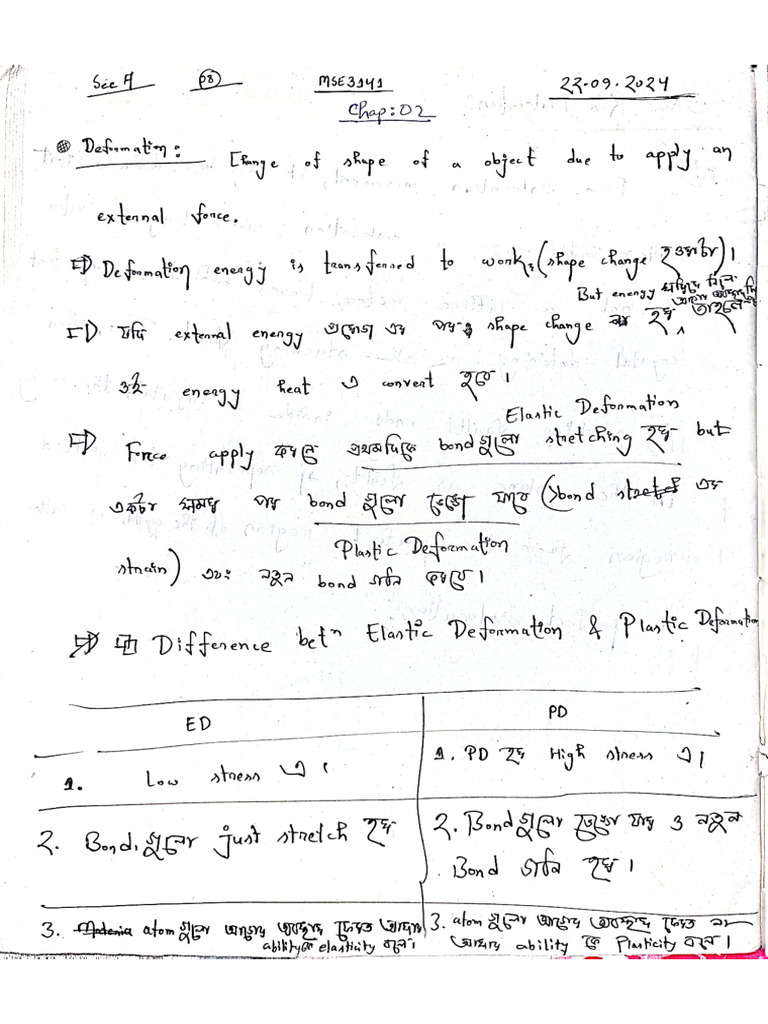 Sec A P8 MSE3141 22.09.2024
Chap: 02
Deformation: Change of shape of a object due to apply an
external force.
⇒ Deformation energy is transferred to work, (shape change হওয়াটা)।
But energy সরিয়ে নিলে
আগের অবস্থায়
⇒ যদি external energy প্রয়োগ এর পরও shape change না হয়, তাহলে
ওই energy heat এ convert হবে।
Elastic Deformation
⇒ Force apply করলে প্রথমদিকে bondগুলো stretching হয় but
একটা সময় পর bond গুলো ভেঙ্গে যাবে (bond এর
Plastic Deformation
strain) এবং নতুন bond তৈরি করবে।
⇒ Difference betn Elastic Deformation & Plastic Deformation
ED PD
1. Low stress এ। 1. PD হয় High stress এ।
2. Bondগুলো just stretch হয় 2. Bondগুলো ভেঙ্গে যায় ও নতুন
Bond তৈরি হয়।
3. atom গুলো আগের অবস্থায় ফেরত আসার 3. atom গুলো আগের অবস্থায় ফেরত না
abilityকে elasticity বলে। আসার ability কে Plasticity বলে।